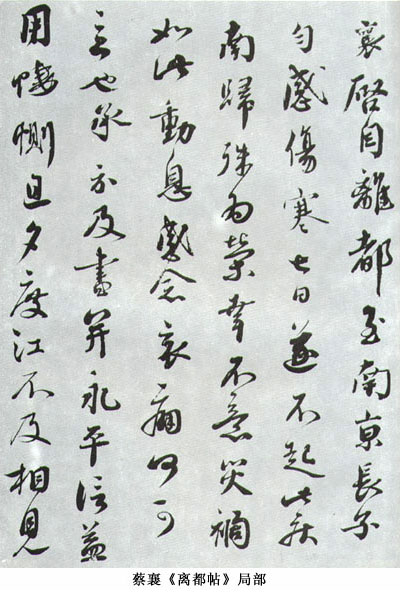 襄啓自離都至南京長子
匀感傷寒七日遂不起此疾
南歸殊為榮幸不意災禍
如此動息感念哀痛何可
言也承示及書并永平信益
用悽惻旦夕度江不及相見
蔡襄《离都帖》局部